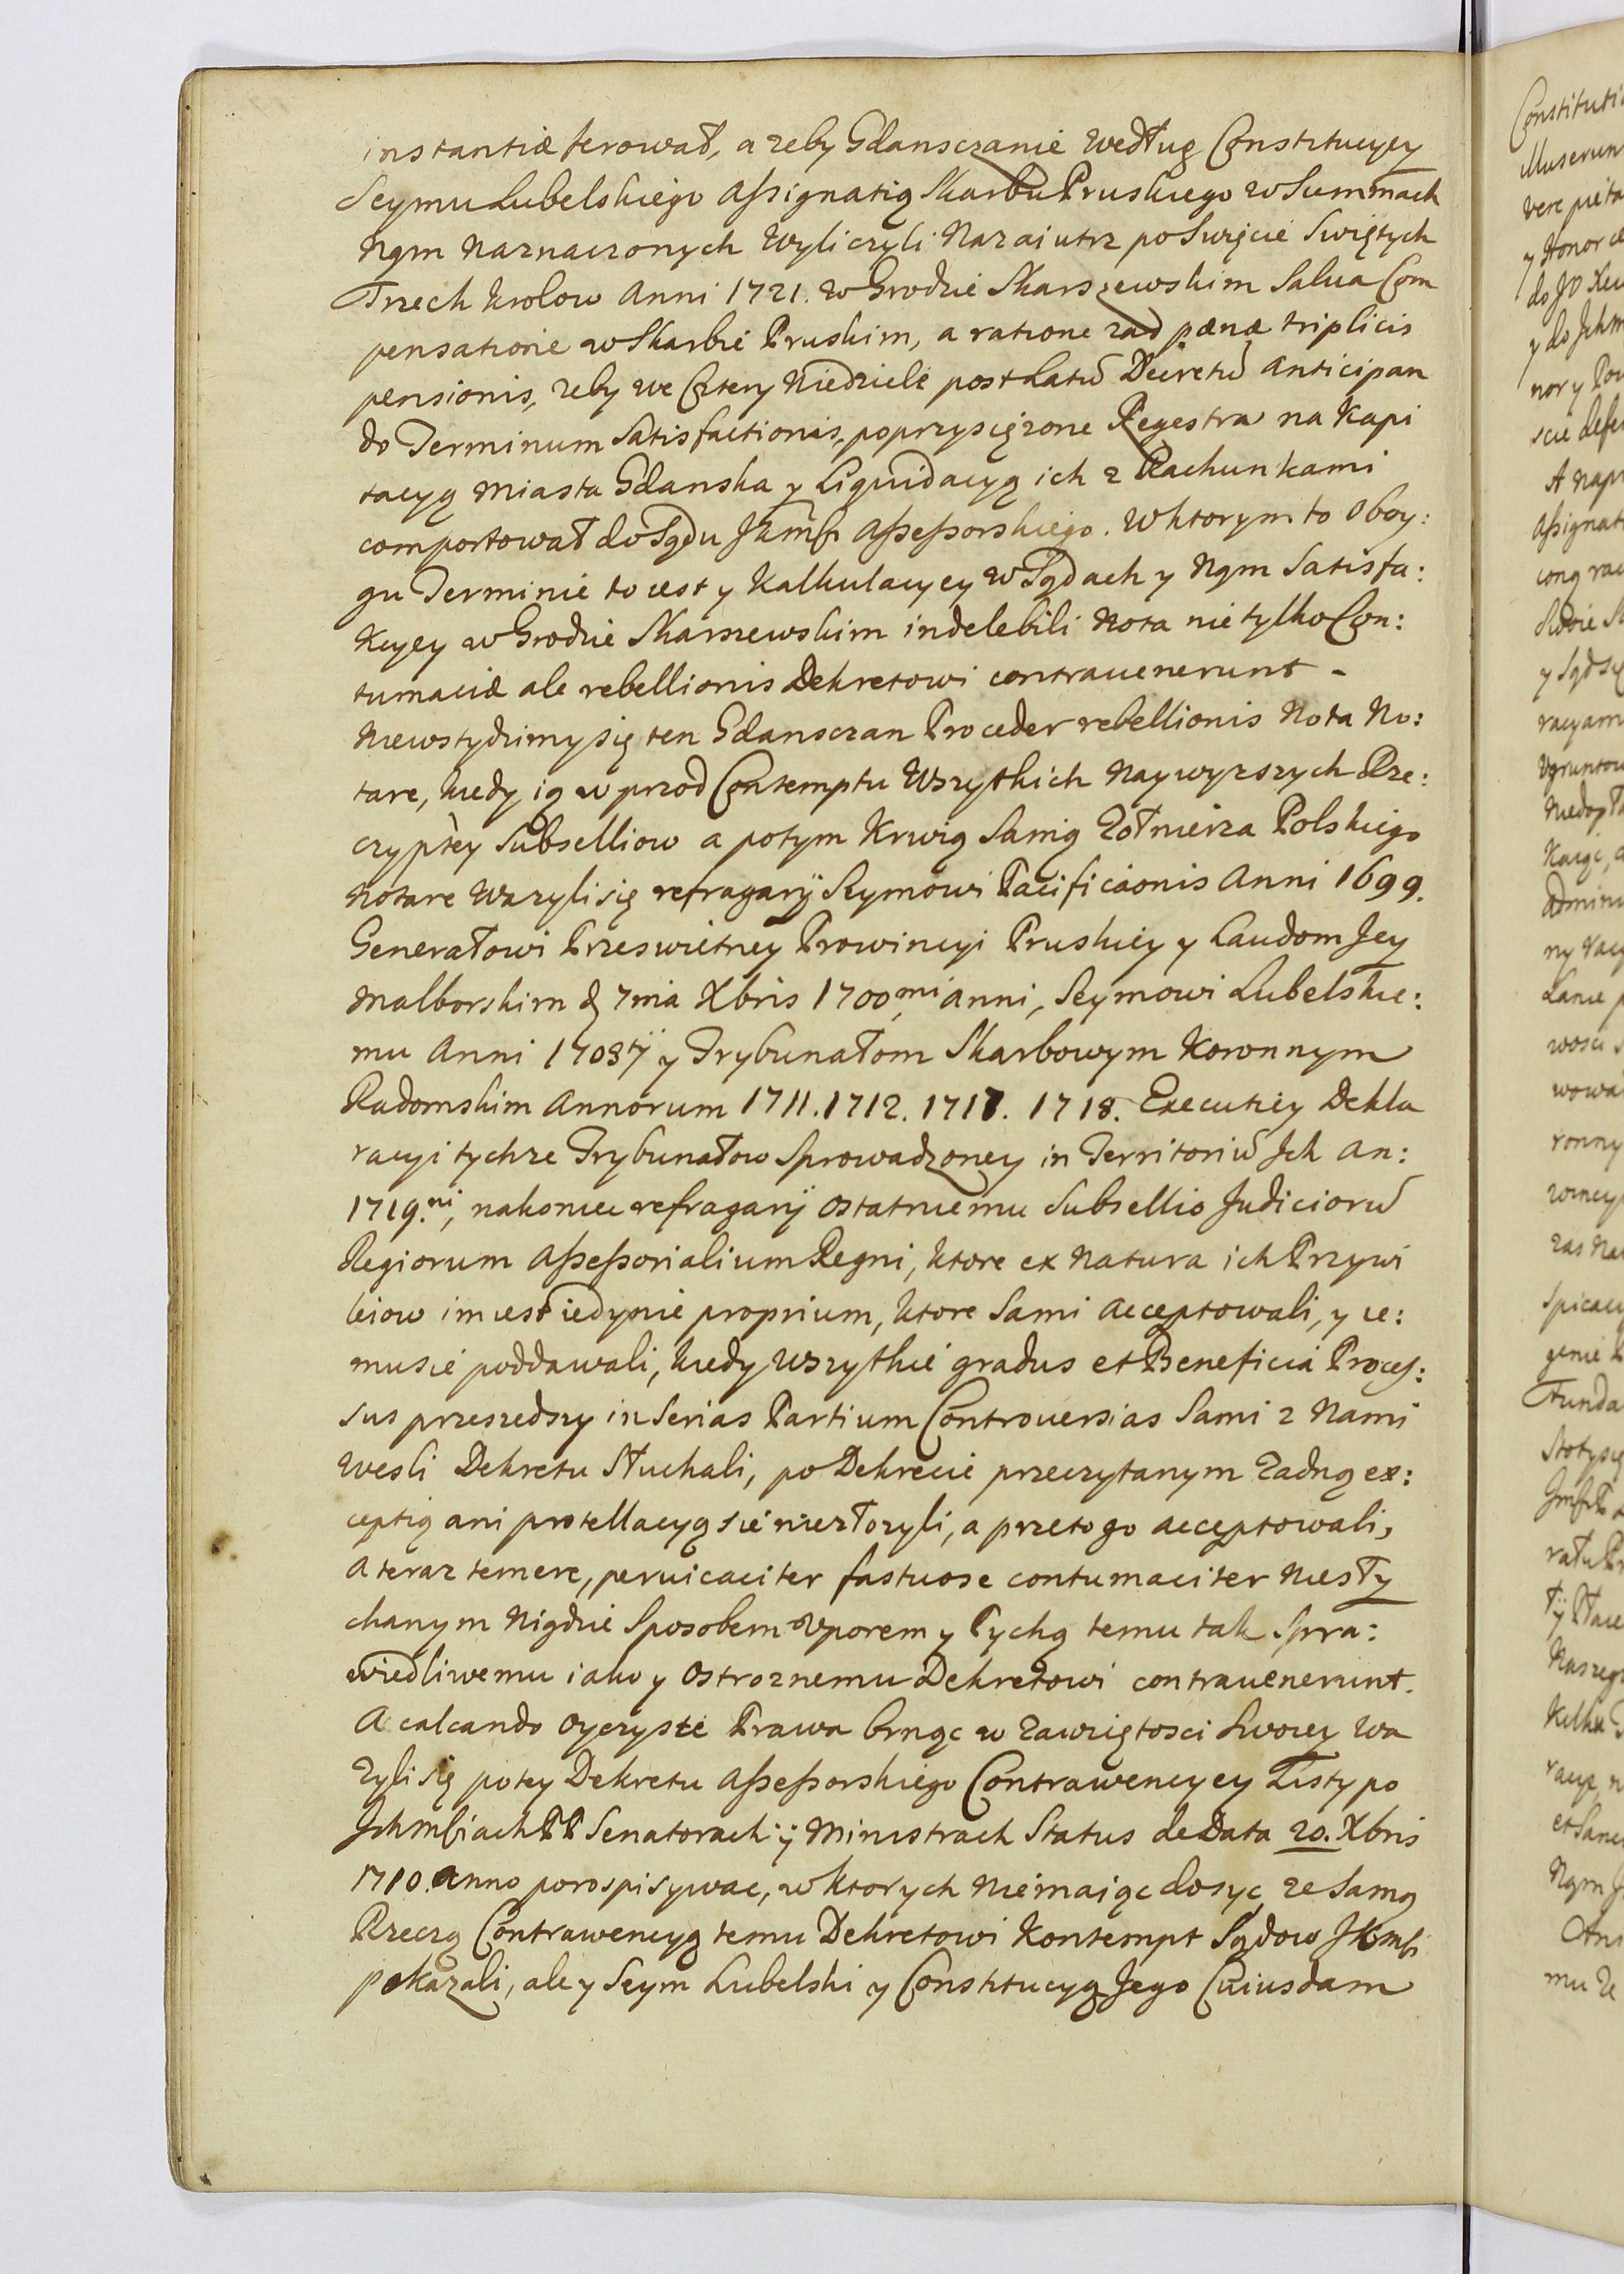 instantiæ ferował, a zeby Gdansczanie według Constitucyey
Seymu Lubelskiego Assignatią Skarbu Pruskiego w Summach
Ngm Naznaczonych Wyliczyli Nazaiutrz po Swięcie Swiętych
Trzech Krolow Anni 1721. w Grodzie Skarszewskim Salua Com
pensatione w Skarbie Pruskim, a ratione zad pænæ triplicis
pensionis, zeby we Cztery Niedziele post Latũ Decretũ Anticipan
do Terminum Satisfactionis, poprzysięzone Regestra na Kapi
tacyą Miasta Gdanska y Liquidacyą ich z Rachunkami
comportował do Sądu JKmśi Assessorskiego. W ktorym to Oboy:
gu Terminie to iest y Kalkulacyey w Sądach y Ngm Satisfa:
kcyey w Grodzie Skarszewskim indelebili Nota nie tylko Con:
tumaciæ ale rebellionis Dekretowi contrauenerunt -
Niewstydzimy się ten Gdansczan Proceder rebellionis Nota No:
tare, kiedy ią w przod Contemptu Wszytkich Naywyzszych Rze:
czyptey Subselliow a potym Krwią Samą Zołnierza Polskiego
Notare Wazyli się refragarij Seymowi Pacificãonis Anni 1699.
Generałowi Przeswietney Prowincyi Pruskiey y Laudom Jey
Malborskim d 7ma Xbris 1700,mi anni, Seymowi Lubelskie:
mu Anni 1703tÿ y Trybunałom Skarbowym Koronnym
Radomskim Annorum 1711. 1712. 1717. 1718. Executiey Dekla
racyi tychze Trybunałow Sprowadzoney in Territoriũ Jch An:
1719.ni, nakoniec refragarij ostatniemu Subsellio Judiciorũ
Regiorum Assessorialium Regni, ktore ex Natura ich Przywi
leiow im iest iedynie proprium, ktore Sami Acceptowali, y ie:
musie poddawali, kiedy Wszytkie gradus et Beneficia Proces:
sus przeszedszy in Serias Partium Controuersias Sami z Nami
Wesli Dekretu Słuchali, po Dekrecie przeczytanym Zadną ex:
ceptią ani protellacyą sie niezłozyli, a przeto go acceptowali,
A teraz temere, peruicaciter fastuose contumaciter niesły
chanym Nigdzie Sposobem Vporem y Pychą temu tak Spra:
wiedliwemu iako y Ostroznemu Dekretowi contrauenerunt.
A calcando Oyczyste Prawa brnąc w Zawziętosci Swoiey Wa
zyli się potey Dekretu Assessorskiego Contrawencyey Listy po
Jchmśiach PP Senatorach ÿ Ministrach Status de Data 20. Xbris
1710. Anno porospisywac, w ktorych niemaiąc dosyc ze Samą
Rzeczą Contrawencyą temu Dekretowi Kontempt Sądow JKmśi
pokazali, ale y Seym Lubelski y Constitucyą Jego Cuiusdam